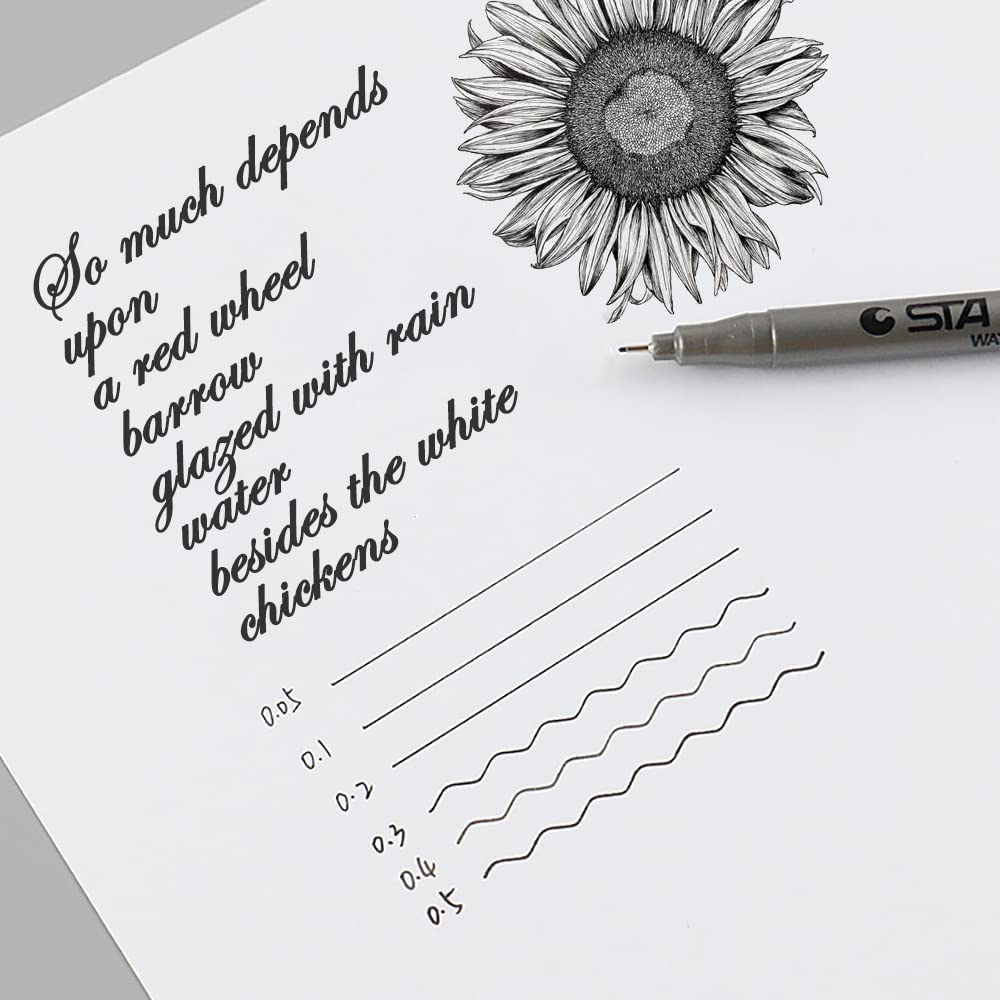 So much depends
upon
a red wheel
barrow
glazed with rain
water
besides the white
chickens
STA
0.05
0.1
0.2
0.3
0.4
0.5